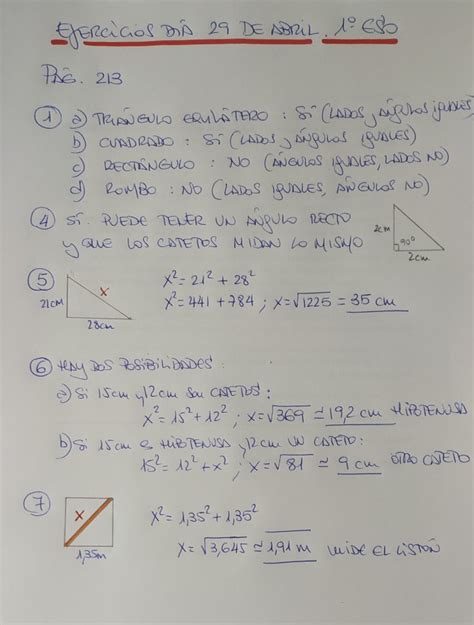 EJERCICIOS DÍA 29 DE ABRIL. 1º ESO
PÁG. 213
① a) TRIÁNGULO EQUILÁTERO : SÍ (LADOS y ÁNGULOS IGUALES)
b) CUADRADO : SÍ (LADOS y ÁNGULOS IGUALES)
c) RECTÁNGULO : NO (ÁNGULOS IGUALES, LADOS NO)
d) ROMBO : NO (LADOS IGUALES, ÁNGULOS NO)
④ SÍ. PUEDE TENER UN ÁNGULO RECTO
y QUE LOS CATETOS MIDAN LO MISMO
2cm
90º
2cm
⑤ x² = 21² + 28²
x² = 441 + 784 ; x = √1225 = 35 cm
21cm
x
28cm
⑥ HAY DOS POSIBILIDADES :
a) Si 15cm y 12cm SON CATETOS :
x² = 15² + 12² ; x = √369 ≃ 19,2 cm HIPOTENUSA
b) Si 15cm es HIPOTENUSA y 12cm UN CATETO:
15² = 12² + x² ; x = √81 ≃ 9 cm OTRO CATETO
⑦ x² = 1,35² + 1,35²
x = √3,645 ≃ 1,91 m MIDE EL LISTÓN
x
1,35m